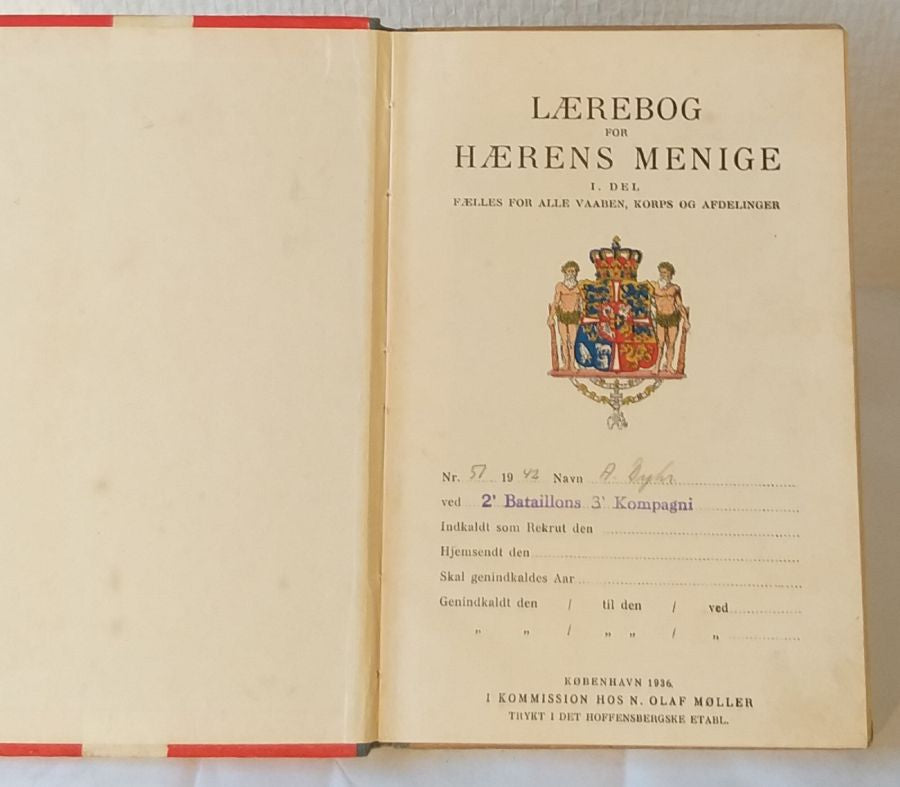 LÆREBOG
FOR
HÆRENS MENIGE
I. DEL
FÆLLES FOR ALLE VAABEN, KORPS OG AFDELINGER
Nr. 51 1942 Navn A. Dyhr
ved 2' Bataillons 3' Kompagni
Indkaldt som Rekrut den
Hjemsendt den
Skal genindkaldes Aar
Genindkaldt den / til den / ved
„ „ / „ „ / „
KØBENHAVN 1936.
I KOMMISSION HOS N. OLAF MØLLER
TRYKT I DET HOFFENSBERGSKE ETABL.